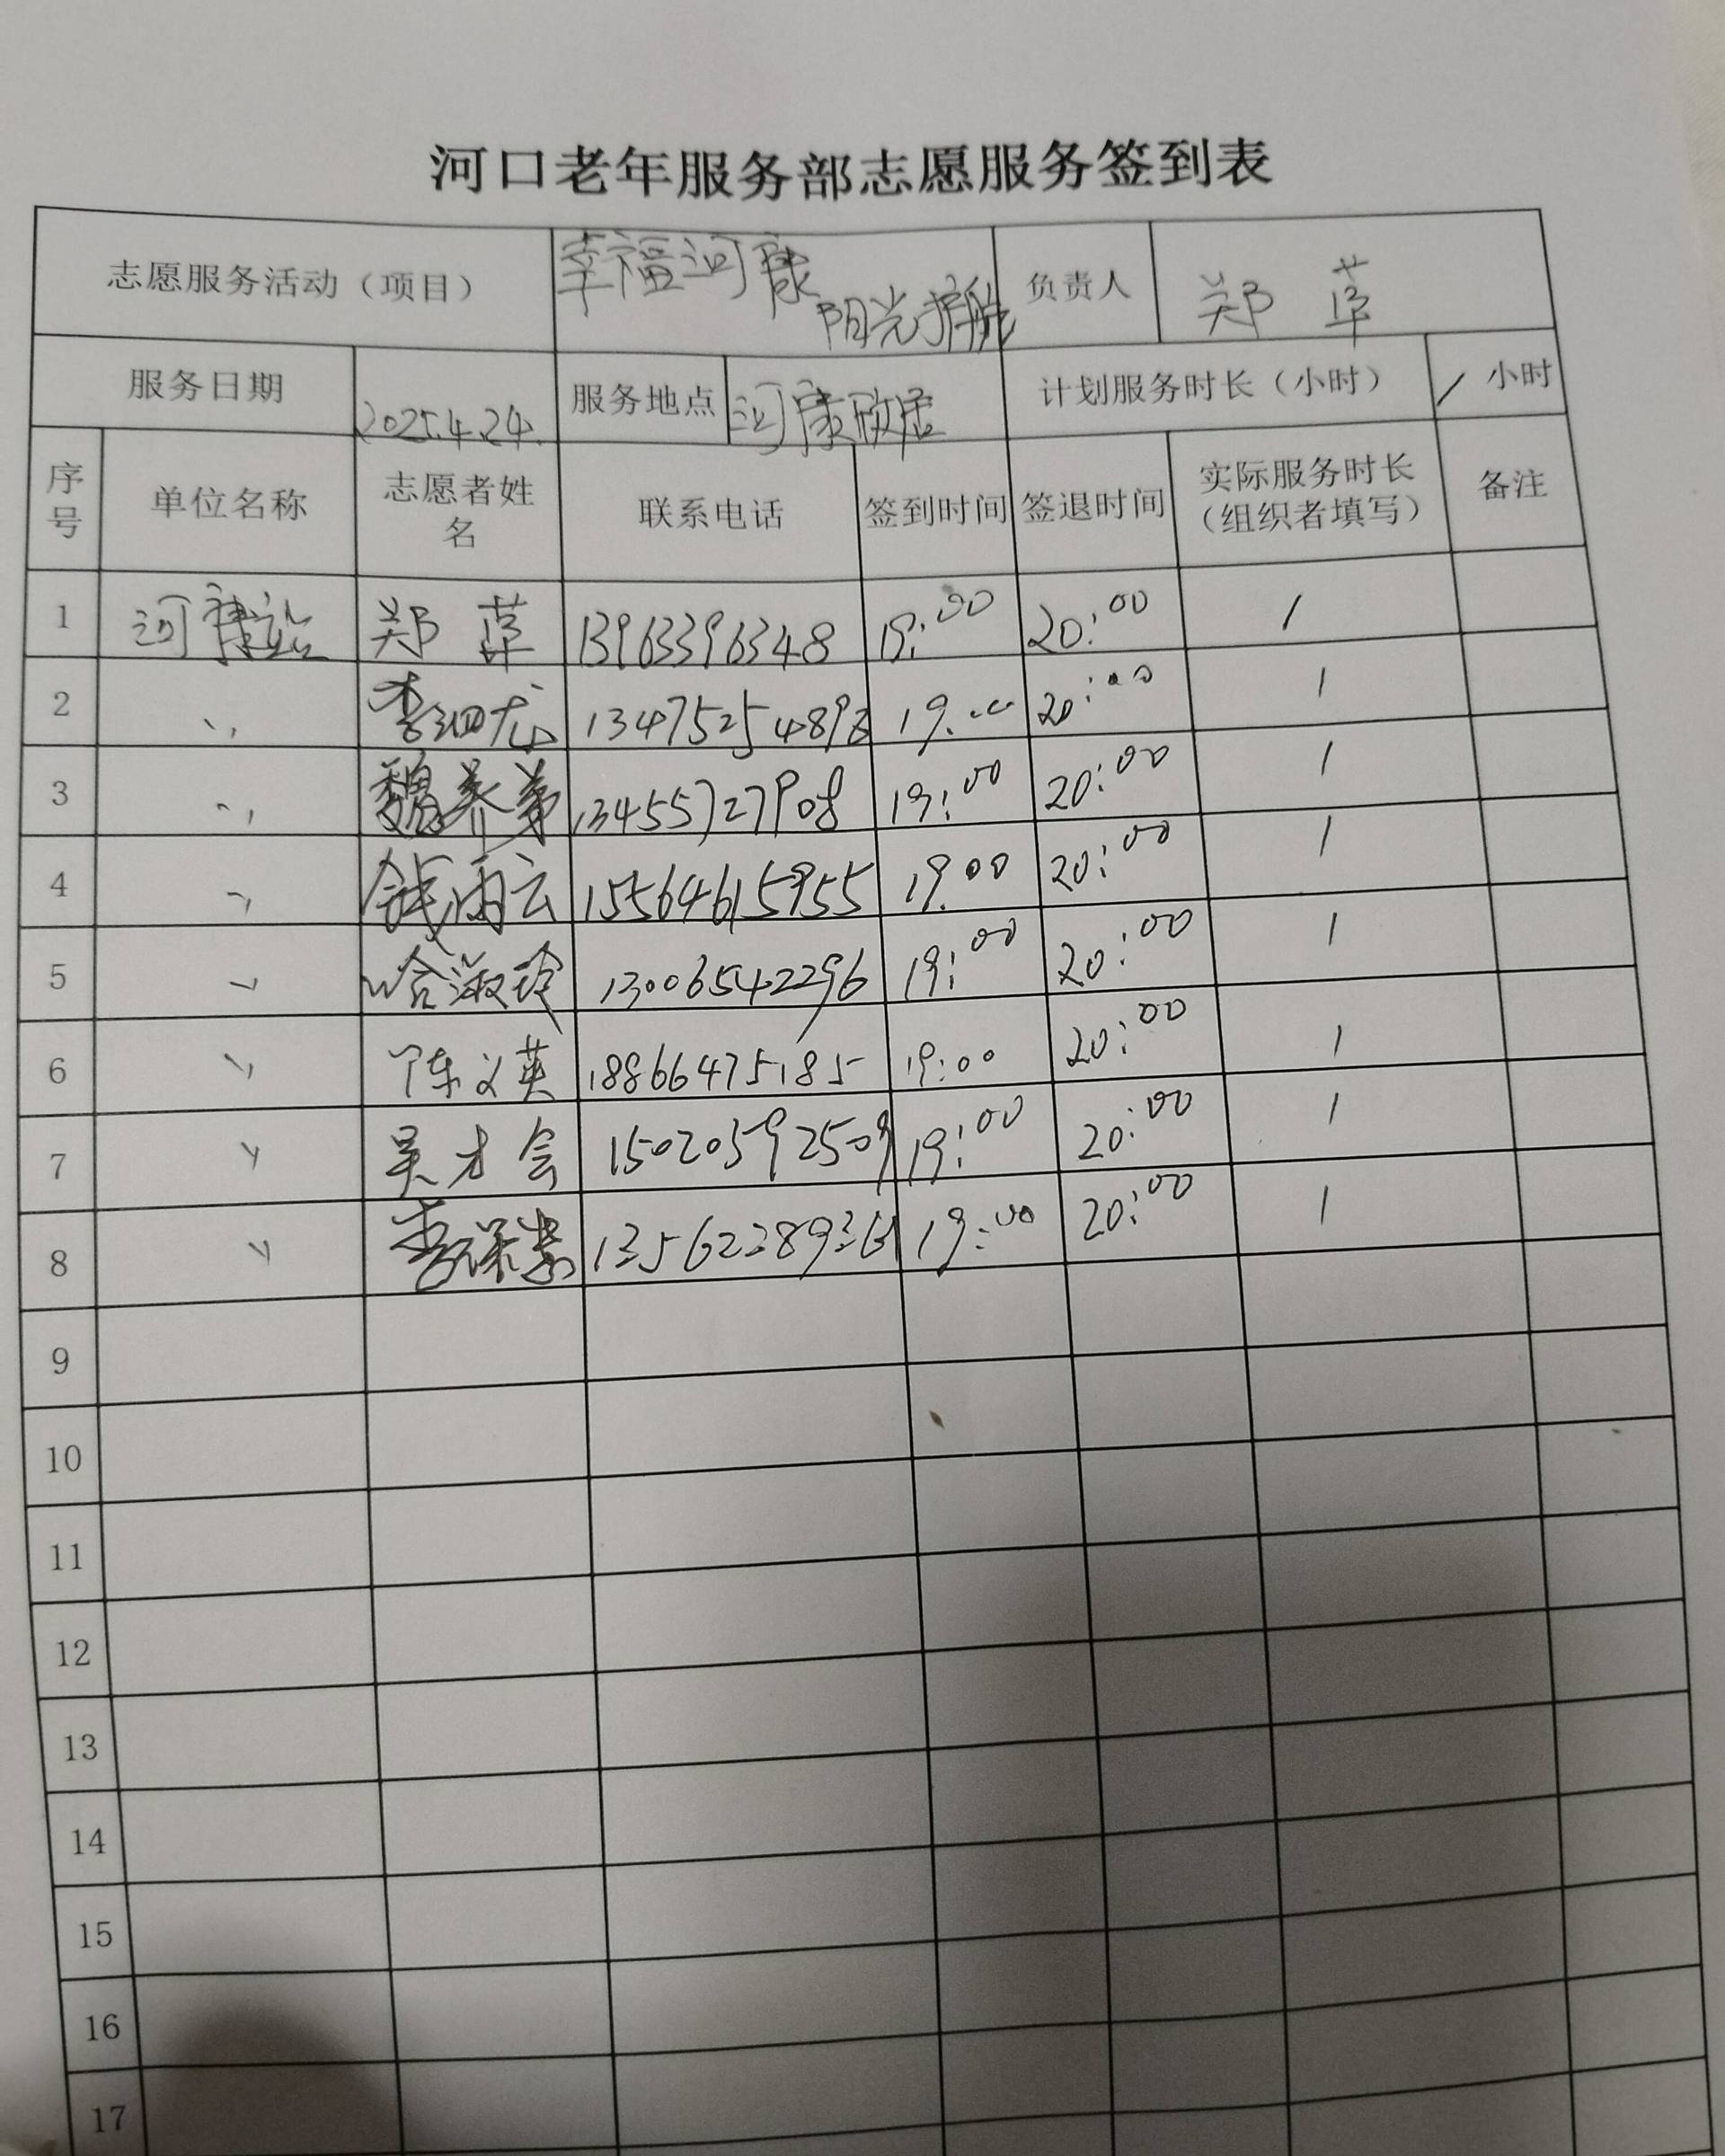 河口老年服务部志愿服务签到表
志愿服务活动（项目） 幸福河康 阳光护航 负责人 郑 草
服务日期 2025.4.24. 服务地点 河康欣居 计划服务时长（小时） 1 小时
序号 单位名称 志愿者姓名 联系电话 签到时间 签退时间 实际服务时长（组织者填写） 备注
1 河康站 郑 草 13963396348 19:00 20:00 1
2 〃 李 13475254898 19:00 20:00 1
3 〃 魏养第 13455727908 19:00 20:00 1
4 〃 钱雨云 15564615955 19:00 20:00 1
5 〃 哈淑玲 13006542296 19:00 20:00 1
6 〃 陈义英 18866475185 19:00 20:00 1
7 〃 吴才会 15020592509 19:00 20:00 1
8 〃 李 19:00 20:00 1
9
10
11
12
13
14
15
16
17